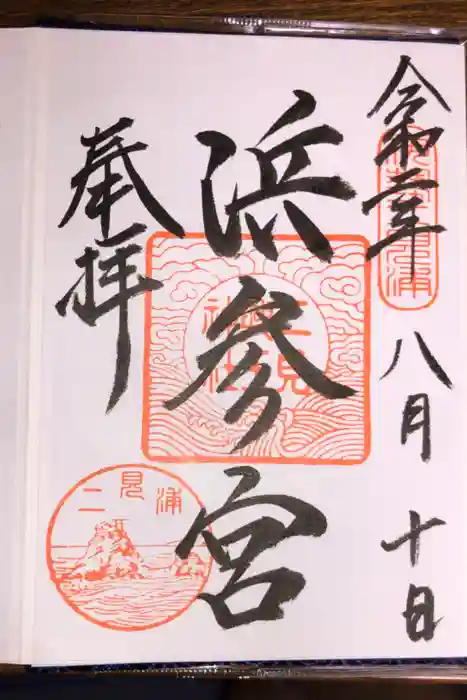 令和二年 八月 十日
浜参宮
奉拝
二見
神社
二見浦